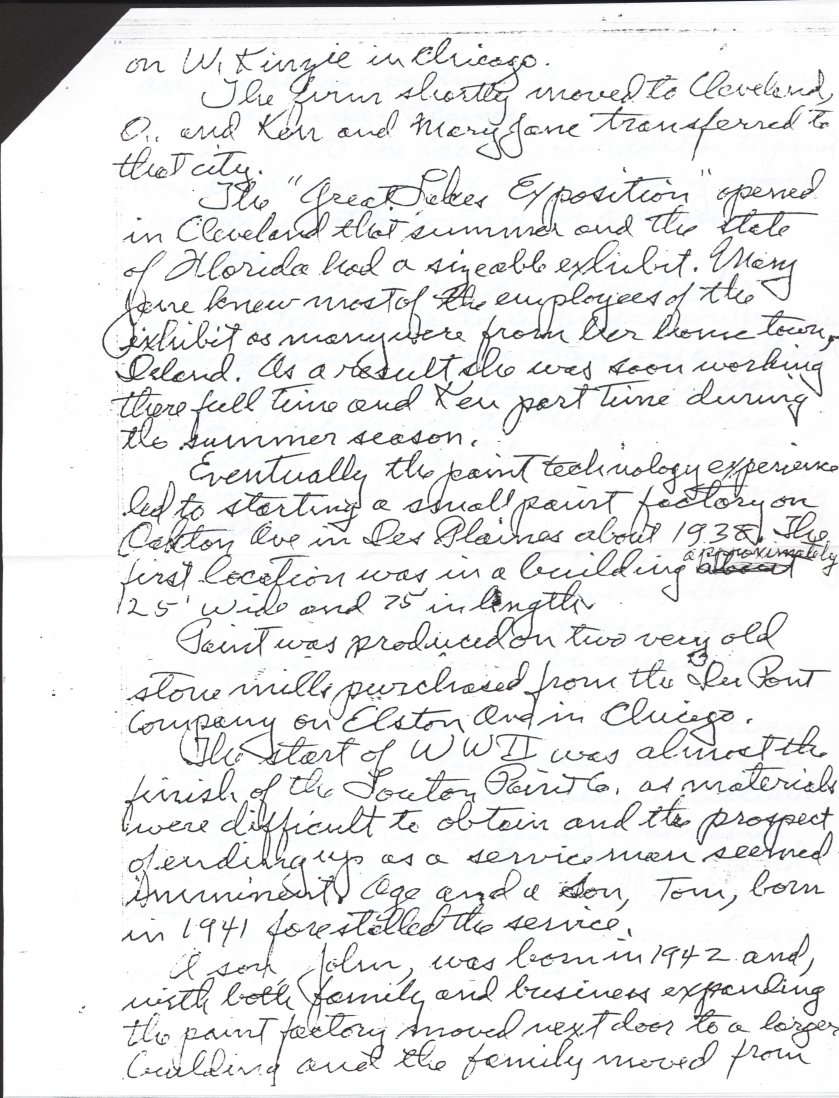 on W. Kinzie in Chicago.
The firm shortly moved to Cleveland,
O., and Ken and Mary Jane transferred to
that city.
The "Great Lakes Exposition" opened
in Cleveland that summer and the state
of Florida had a sizeable exhibit. Mary
Jane knew most of the employees of the
exhibit as many were from her home town,
Deland. As a result she was soon working
there full time and Ken part time during
the summer season.
Eventually the paint technology experience
led to starting a small paint factory on
Oakton Ave in Des Plaines about 1938. The
first location was in a building approximately
25' wide and 75' in length.
Paint was produced on two very old
stone mills purchased from the Du Pont
Company on Elston Ave in Chicago.
The start of WW II was almost the
finish of the Paint Co. as materials
were difficult to obtain and the prospect
of ending up as a service man seemed
imminent. Age and a son, Tom, born
in 1941 forestalled the service.
A son, John, was born in 1942 and,
with both family and business expanding
the paint factory moved next door to a larger
building and the family moved from